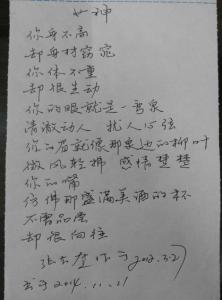 女神
你身不高
却身材窈窕
你体不重
却很生动
你的眼就是一弯泉
清澈动人 扰人心弦
你的眉就像那泉边的柳叶
微风轻拂 感情楚楚
你的嘴
仿佛那盛满美酒的杯
不需品尝
却很向往
作于2012.3.27
书于2014.11.21